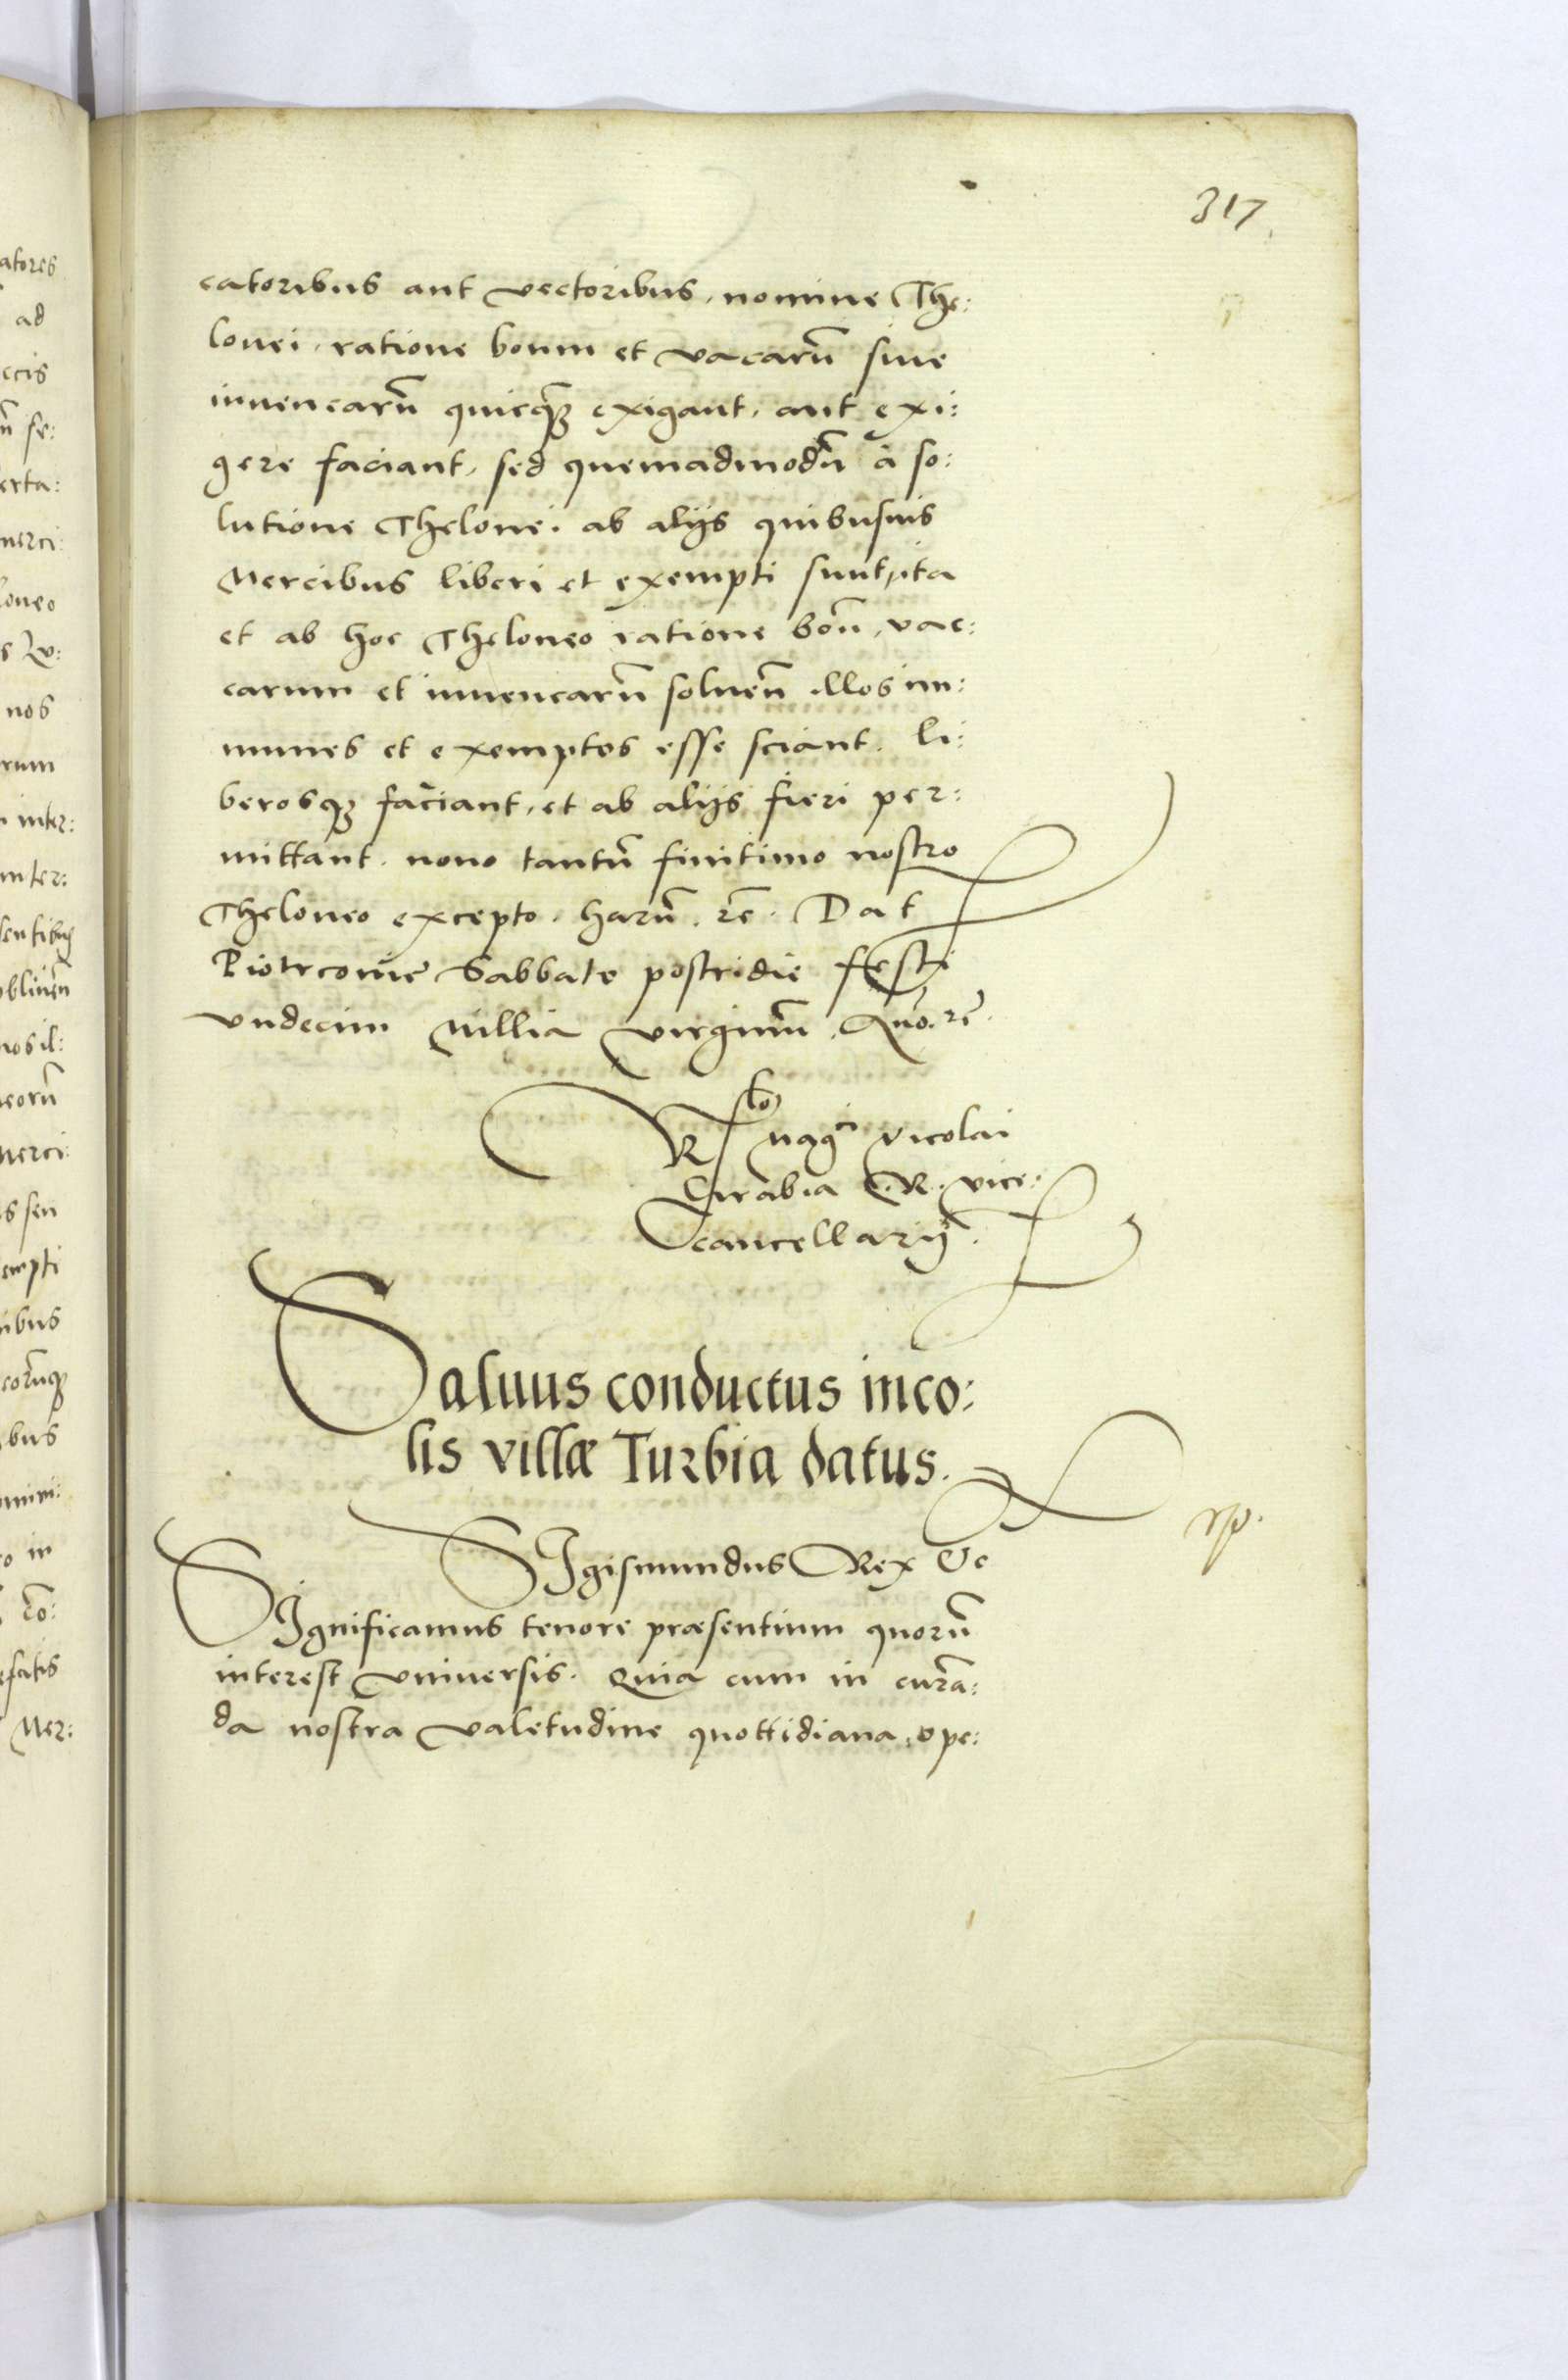 317
catoribus aut vectoribus, nomine The:
lonei, ratione boum et vacarũ siue
iuuencarũ quicq̃ȝ exigant, aut exi:
gere faciant, sed quemadmodũ à so:
lutione Thelonei ab alijs quibusuis
Mercibus liberi et exempti sunt, ita
et ab hoc Theloneo ratione boũ, vac:
carum et iuuencarũ soluen̄ illos im:
munes et exemptos esse sciant. li:
berosqȝ faciant, et ab alijs fieri per:
mittant. nouo tantũ finitimo nostro
Theloneo excepto. harũ. rē. Dat
Piotrcouiē Sabbato postridie festi
vndecim Millia virginũ. Anõ. rē.
Rlo Mag^ci Nicolai
Grabia R. vice:
cancellarij.
Saluus conductus inco:
lis villæ Turbia datus.
SIgismundus Rex &c
SIgnificamus tenore præsentium quorũ
interest vniuersis. Quia cum in curã:
da nostra valetudine quottidiana, ope:
atores
ad
ecis
se:
erta:
merci:
loneo
nos
rum
inter:
inter:
nos il:
eorũ
Merci:
s seu
empti
ibus
bus
o in
efatis
Mer: